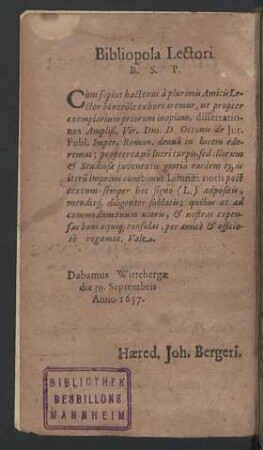 Bibliopola Lectori
B. S. P.
Cùm sepius hactenus à plurimis Amicis Le-
ctor benevole exhortaremur, ut propter
exemplarium priorum inopiam, dissertatio-
nes Ampliss. Vir. Dni. D. Ottonis de Jur.
Publ. Imper. Roman. denuò in lucem ede-
remus; propterea nō lucri turpis, sed illorum
& Studiosæ juventutis gratia easdem
iterū imprimi curavimus notis post
textum semper hoc signo (L.) adpositis,
mendisq́; diligenter sublatis; quibus ut ad
commodum tuum utaris, & nostras expen-
sas boni æquiq́; consulas, per amicè & officio-
sè rogamus, Vale.
Dabamus Wittebergæ
die 30. Septembris
Anno 1657.
Hæred. Joh. Bergeri.
BIBLIOTHEK
DESBILLONS
MANNHEIM